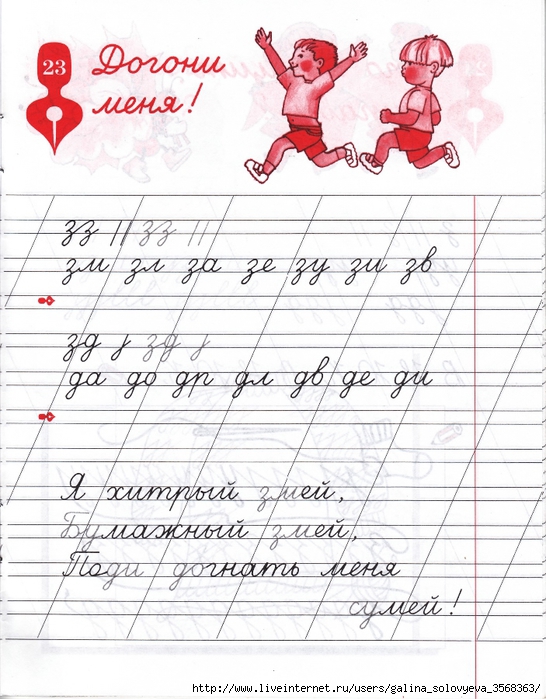 23
Догони
меня!
зз зз
зм зл за зе зу зи зв
зд зд
да до др дл дв де ди
Я хитрый змей,
Бумажный змей,
Поди догнать меня
сумей!
http://www.liveinternet.ru/users/galina_solovyeva_3568363/